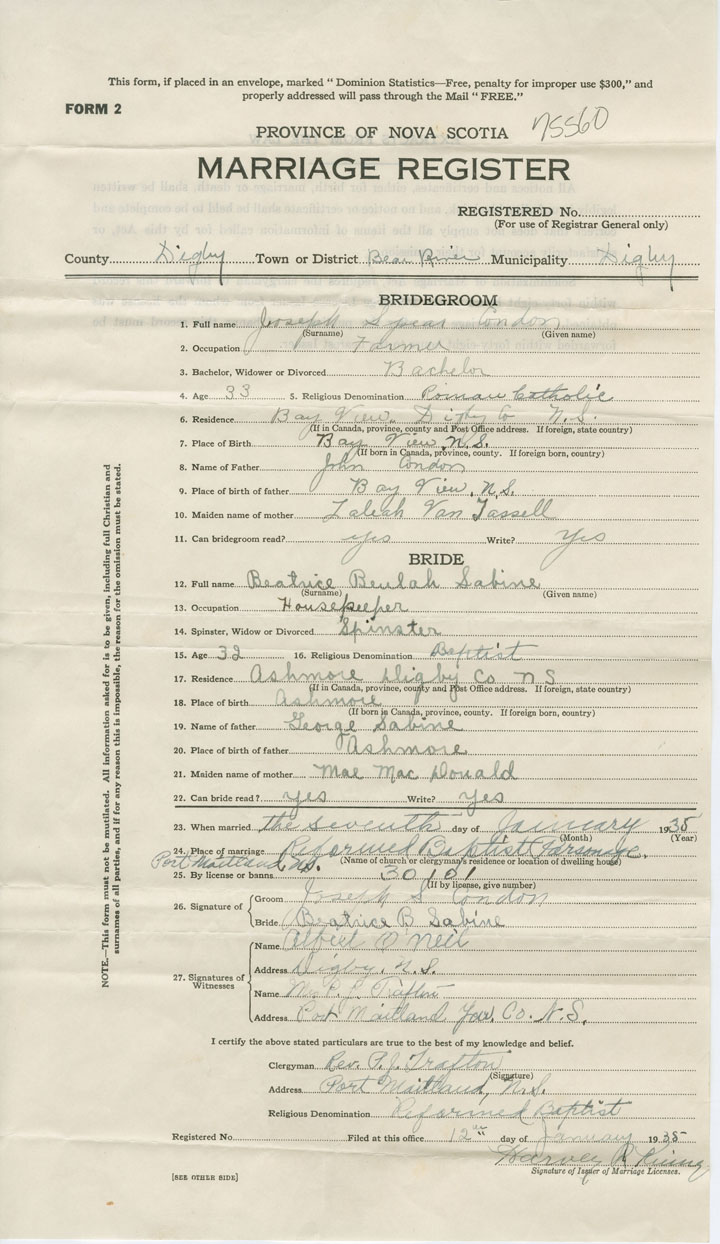 This form, if placed in an envelope, marked " Dominion Statistics—Free, penalty for improper use $300," and
properly addressed will pass through the Mail " FREE."
FORM 2
PROVINCE OF NOVA SCOTIA
MARRIAGE REGISTER
REGISTERED No.
(For use of Registrar General only)
County Digby Town or District Bear River Municipality Digby
BRIDEGROOM
1. Full name Joseph Spear Condon
(Surname) (Given name)
2. Occupation Farmer
3. Bachelor, Widower or Divorced Bachelor
4. Age 33 5. Religious Denomination Roman Catholic
6. Residence Bay View, Digby Co N.S.
(If in Canada, province, county and Post Office address. If foreign, state country)
7. Place of Birth Bay View, N.S.
(If born in Canada, province, county. If foreign born, country)
8. Name of Father John Condon
9. Place of birth of father Bay View, N.S.
10. Maiden name of mother Van Tassell
11. Can bridegroom read? yes Write? Yes
BRIDE
12. Full name Beatrice Beulah Sabine
(Surname) (Given name)
13. Occupation Housekeeper
14. Spinster, Widow or Divorced Spinster
15. Age 32 16. Religious Denomination Baptist
17. Residence Ashmore Digby Co N S
(If in Canada, province, county and Post Office address. If foreign, state country)
18. Place of birth Ashmore
(If born in Canada, province, county. If foreign born, country)
19. Name of father George Sabine
20. Place of birth of father Ashmore
21. Maiden name of mother Mae Mac Donald
22. Can bride read? yes Write? yes
23. When married the seventh day of January 1935
(Month) (Year)
24. Place of marriage Reformed Baptist Parsonage,
Port Maitland, N.S. (Name of church or clergyman's residence or location of dwelling house)
25. By license or banns 30101
(If by license, give number)
26. Signature of Groom Joseph S Condon
Bride Beatrice B Sabine
27. Signatures of Witnesses Name Albert O'Neil
Address Digby, N.S.
Name Mrs. P. J. Trafton
Address Port Maitland Yar. Co. N.S.
I certify the above stated particulars are true to the best of my knowledge and belief.
Clergyman Rev. P. J. Trafton
(Signature)
Address Port Maitland, N.S.
Religious Denomination Reformed Baptist
Registered No. Filed at this office 12th day of January 1935
Signature of Issuer of Marriage Licenses.
[SEE OTHER SIDE]
NOTE.—This form must not be mutilated. All information asked for is to be given, including full Christian and
surnames of all parties, and if for any reason this is impossible, the reason for the omission must be stated.